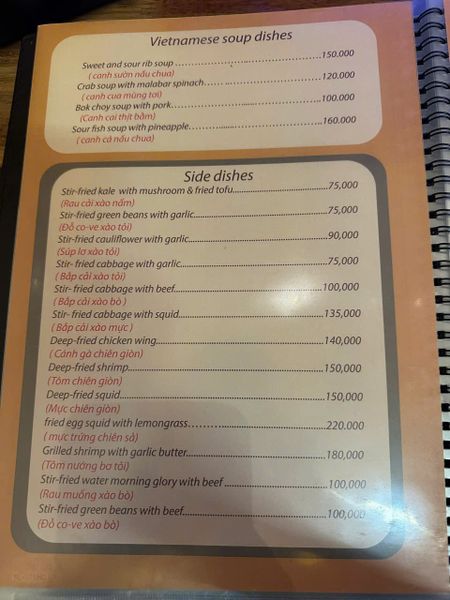 Vietnamese soup dishes
Sweet and sour rib soup ..............................150.000
( canh sườn nấu chua)
Crab soup with malabar spinach..............................120.000
( canh cua mùng tơi)
Bok choy soup with pork..............................100.000
(Canh cai thịt bằm)
Sour fish soup with pineapple..............................160.000
( canh cá nấu chua)
Side dishes
Stir-fried kale with mushroom & fried tofu..............................75,000
(Rau cải xào nấm)
Stir-fried green beans with garlic..............................75,000
(Đỗ co-ve xào tỏi)
Stir-fried cauliflower with garlic..............................90,000
(Súp lơ xào tỏi)
Stir- fried cabbage with garlic..............................75,000
( Bắp cải xào tỏi)
Stir- fried cabbage with beef..............................100,000
( Bắp cải xào bò )
Stir- fried cabbage with squid..............................135,000
( Bắp cải xào mực )
Deep-fried chicken wing..............................140,000
( Cánh gà chiên giòn)
Deep-fried shrimp..............................150,000
(Tôm chiên giòn)
Deep-fried squid..............................150,000
(Mực chiên giòn)
fried egg squid with lemongrass..............................220.000
( mực trứng chiên sả)
Grilled shrimp with garlic butter..............................180,000
(Tôm nướng bơ tỏi)
Stir-fried water morning glory with beef ..............................100,000
(Rau muống xào bò)
Stir-fried green beans with beef..............................100,000
(Đỗ co-ve xào bò)